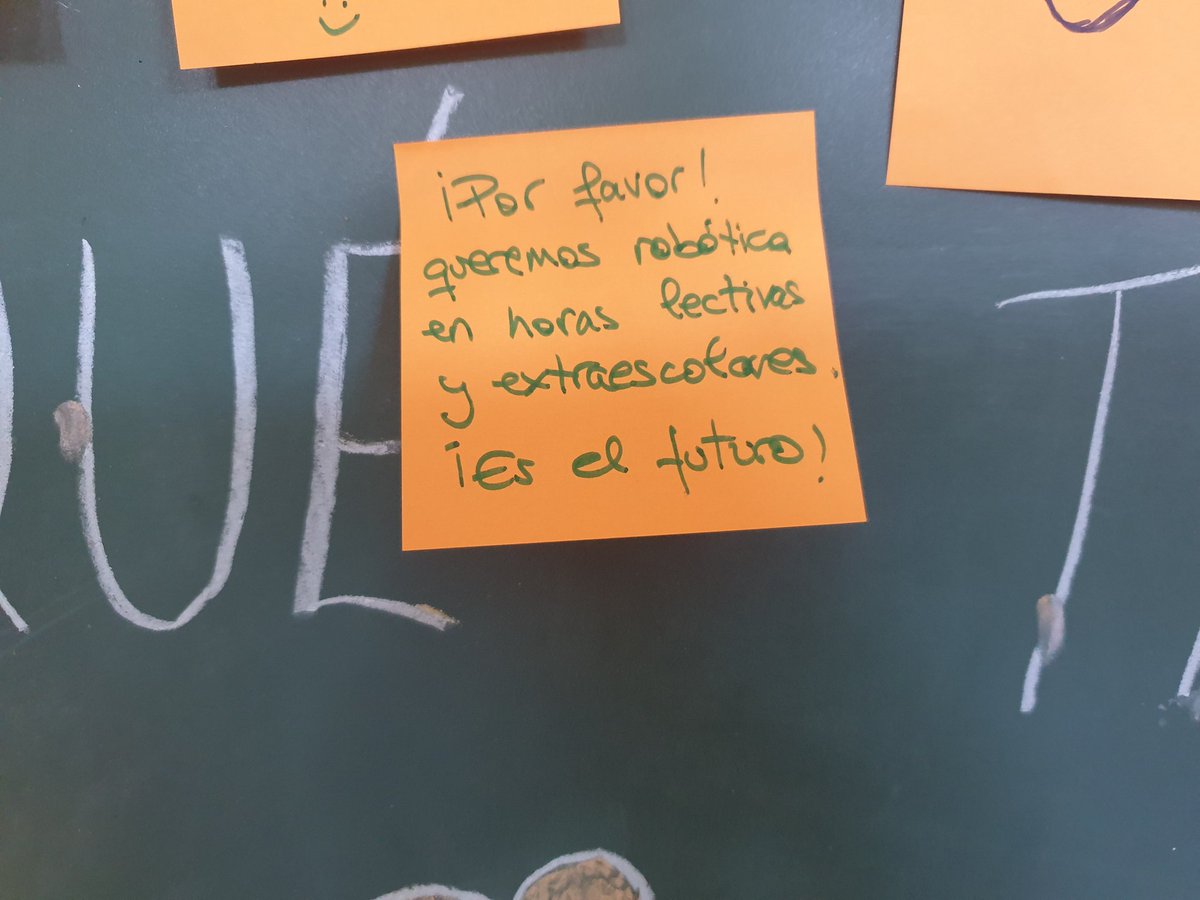 ¡Por favor!
queremos robótica
en horas lectivas
y extraescolares.
¡Es el futuro!
UÉ
T